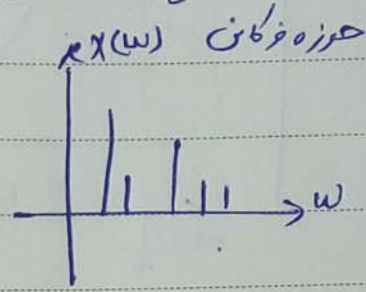 حوزه فرکانس
X(ω)
ω